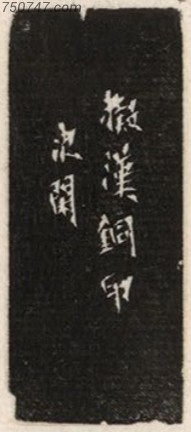 750747.com
擬漢銅印
次閑